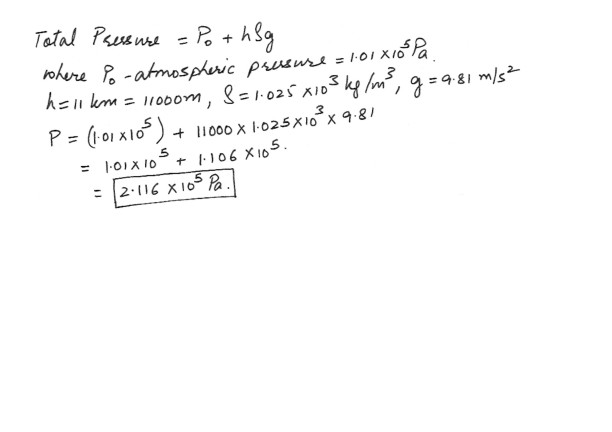 Total Pressure = P₀ + hρg
where P₀ - atmospheric pressure = 1.01 × 10⁵ Pa.
h = 11 km = 11000m, ρ = 1.025 × 10³ kg/m³, g = 9.81 m/s²
P = (1.01 × 10⁵) + 11000 × 1.025 × 10³ × 9.81
= 1.01 × 10⁵ + 1.106 × 10⁵.
= 2.116 × 10⁵ Pa.